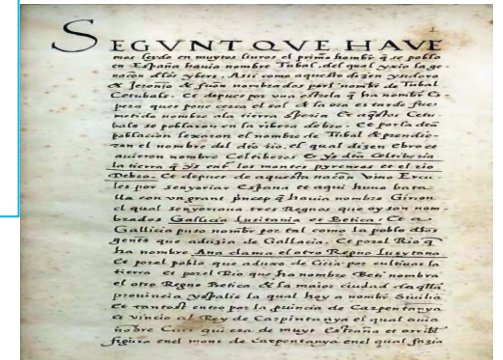 SEGVNT QVE HAVE
mos leydo en muytos liuros el primo hombre q̃ se poblo
en España hauia nombre Tubal. del qual yxio la ge-
nacion dlos ybers. Assi como aquesto dizen ysidoro
& Jeronio & fuon nombrados por l'nombre de Tubal
Cetubale. Et depues por una estela q̃ ha nombre
pera que pone cerca el sol & la ora es tarde fues
metido nombre ala tierra speria & aq̃stos Cetu-
bale se poblaron en la ribera debro. Et por la dta
poblacion lexaron el nombre de Tubal & prendie-
ron el nombre del dto rio. el qual dizen Ebro et
auieron nombre Celtiberos & ys dta Celtiberia
la tierra q̃ ys ent' los montes pyreneos et el rio
Debro. Et depues de aquesta nacion vino Ercu
les por senyoriar España et aqui huuo bata
lla con un grant princep q̃ hauia nombre Girion
el qual senyoriaua tres Regnos que oy son nom-
brados Gallicia Lusitania et Betica. Et a
Gallicia puso nombre por tal como la poblo dlas
gentes que aduzia de Gallacia. Et por el Rio q̃
ha nombre Ana clama el otro Regno Lusytania
Et por el poblo que aduxo de Cicia por cultiuar la
tierra Et por el Rio que ha nombre Beti nombra
el otro Regno Betica & la maior ciudad daq̃lla
prouincia yspalis la qual hoy a nombre Siuilia
Et tantost entro por la prouincia de Carpentanya
& vincio al Rey de Carpintanya el qual auia
nombre Caco qui era de muyt Estraña et orrible
figura en el mont de Carpentanya en el qual fazia